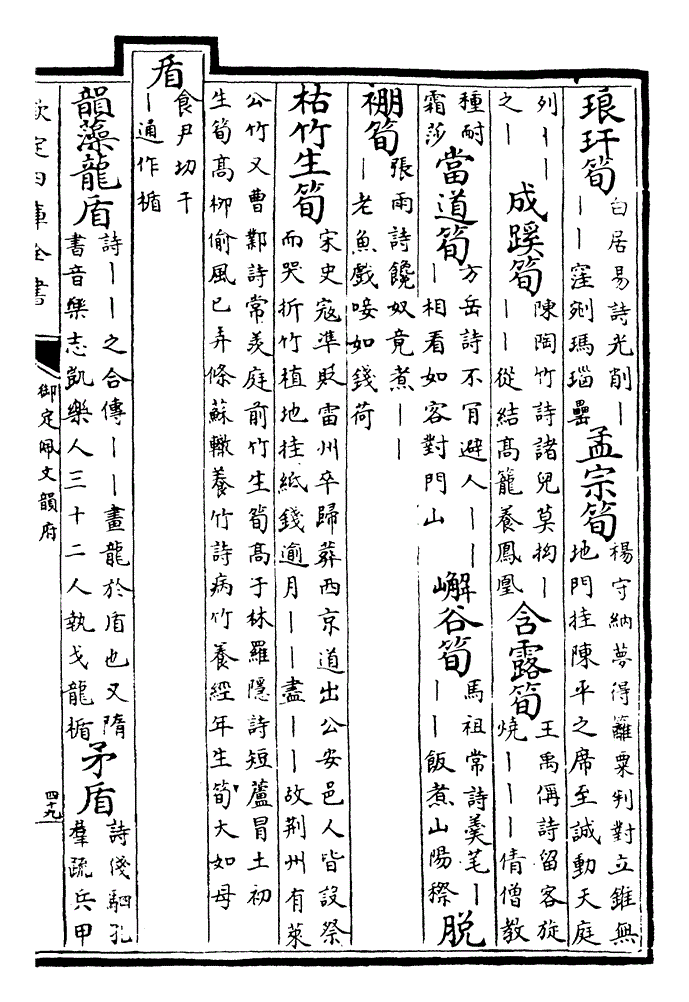 琅玕筍
白居易詩光削丨
丨丨窪剜瑪瑙罍
孟宗筍
楊守納夢得籬粟判對立錐無
地門挂陳平之席至誠動天庭
列丨丨
之丨
成蹊筍
陳陶竹詩諸兒莫拗丨
丨丨從結高籠養鳳凰
含露筍
王禹偁詩留客旋
燒丨丨丨倩僧教
種耐
霜莎
當道筍
方岳詩不肎避人丨丨
丨相看如客對門山
嶰谷筍
馬祖常詩羹芼丨
丨丨飯煮山陽穄
脫
筍
張雨詩饞奴竟煮丨丨
丨老魚戲唼如錢荷
枯竹生筍
宋史寇準貶雷州卒歸葬西京道出公安邑人皆設祭
而哭折竹植地挂紙錢逾月丨丨盡丨丨故荆州有萊
公竹又曹鄴詩常羨庭前竹生筍高于林羅隱詩短蘆冒土初
生筍高柳偷風已弄條蘇轍養竹詩病竹養經年生筍大如母
盾
食尹切干
丨通作楯
韻藻龍盾
詩丨丨之合傳丨丨畫龍於盾也又隋
書音樂志凱樂人三十二人執戈龍楯
矛盾
詩俴駟孔
羣疏兵甲
欽定四庫全書
御定佩文韻府
四十九